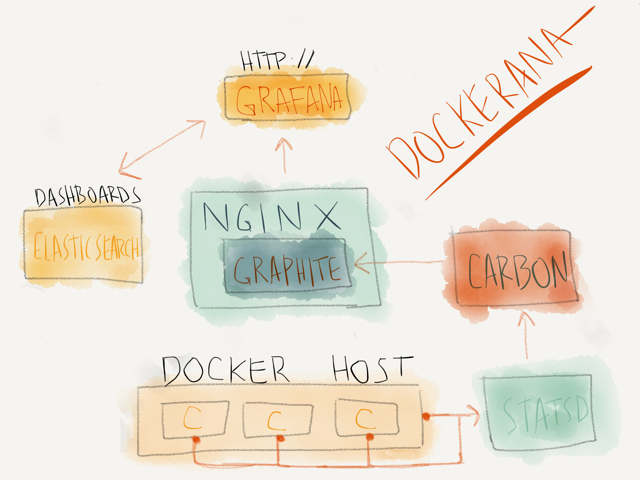 HTTP://
GRAFANA
DOCKERANA
DASHBOARDS
ELASTICSEARCH
NGINX
GRAPHITE
CARBON
DOCKER HOST
C C C
STATSD